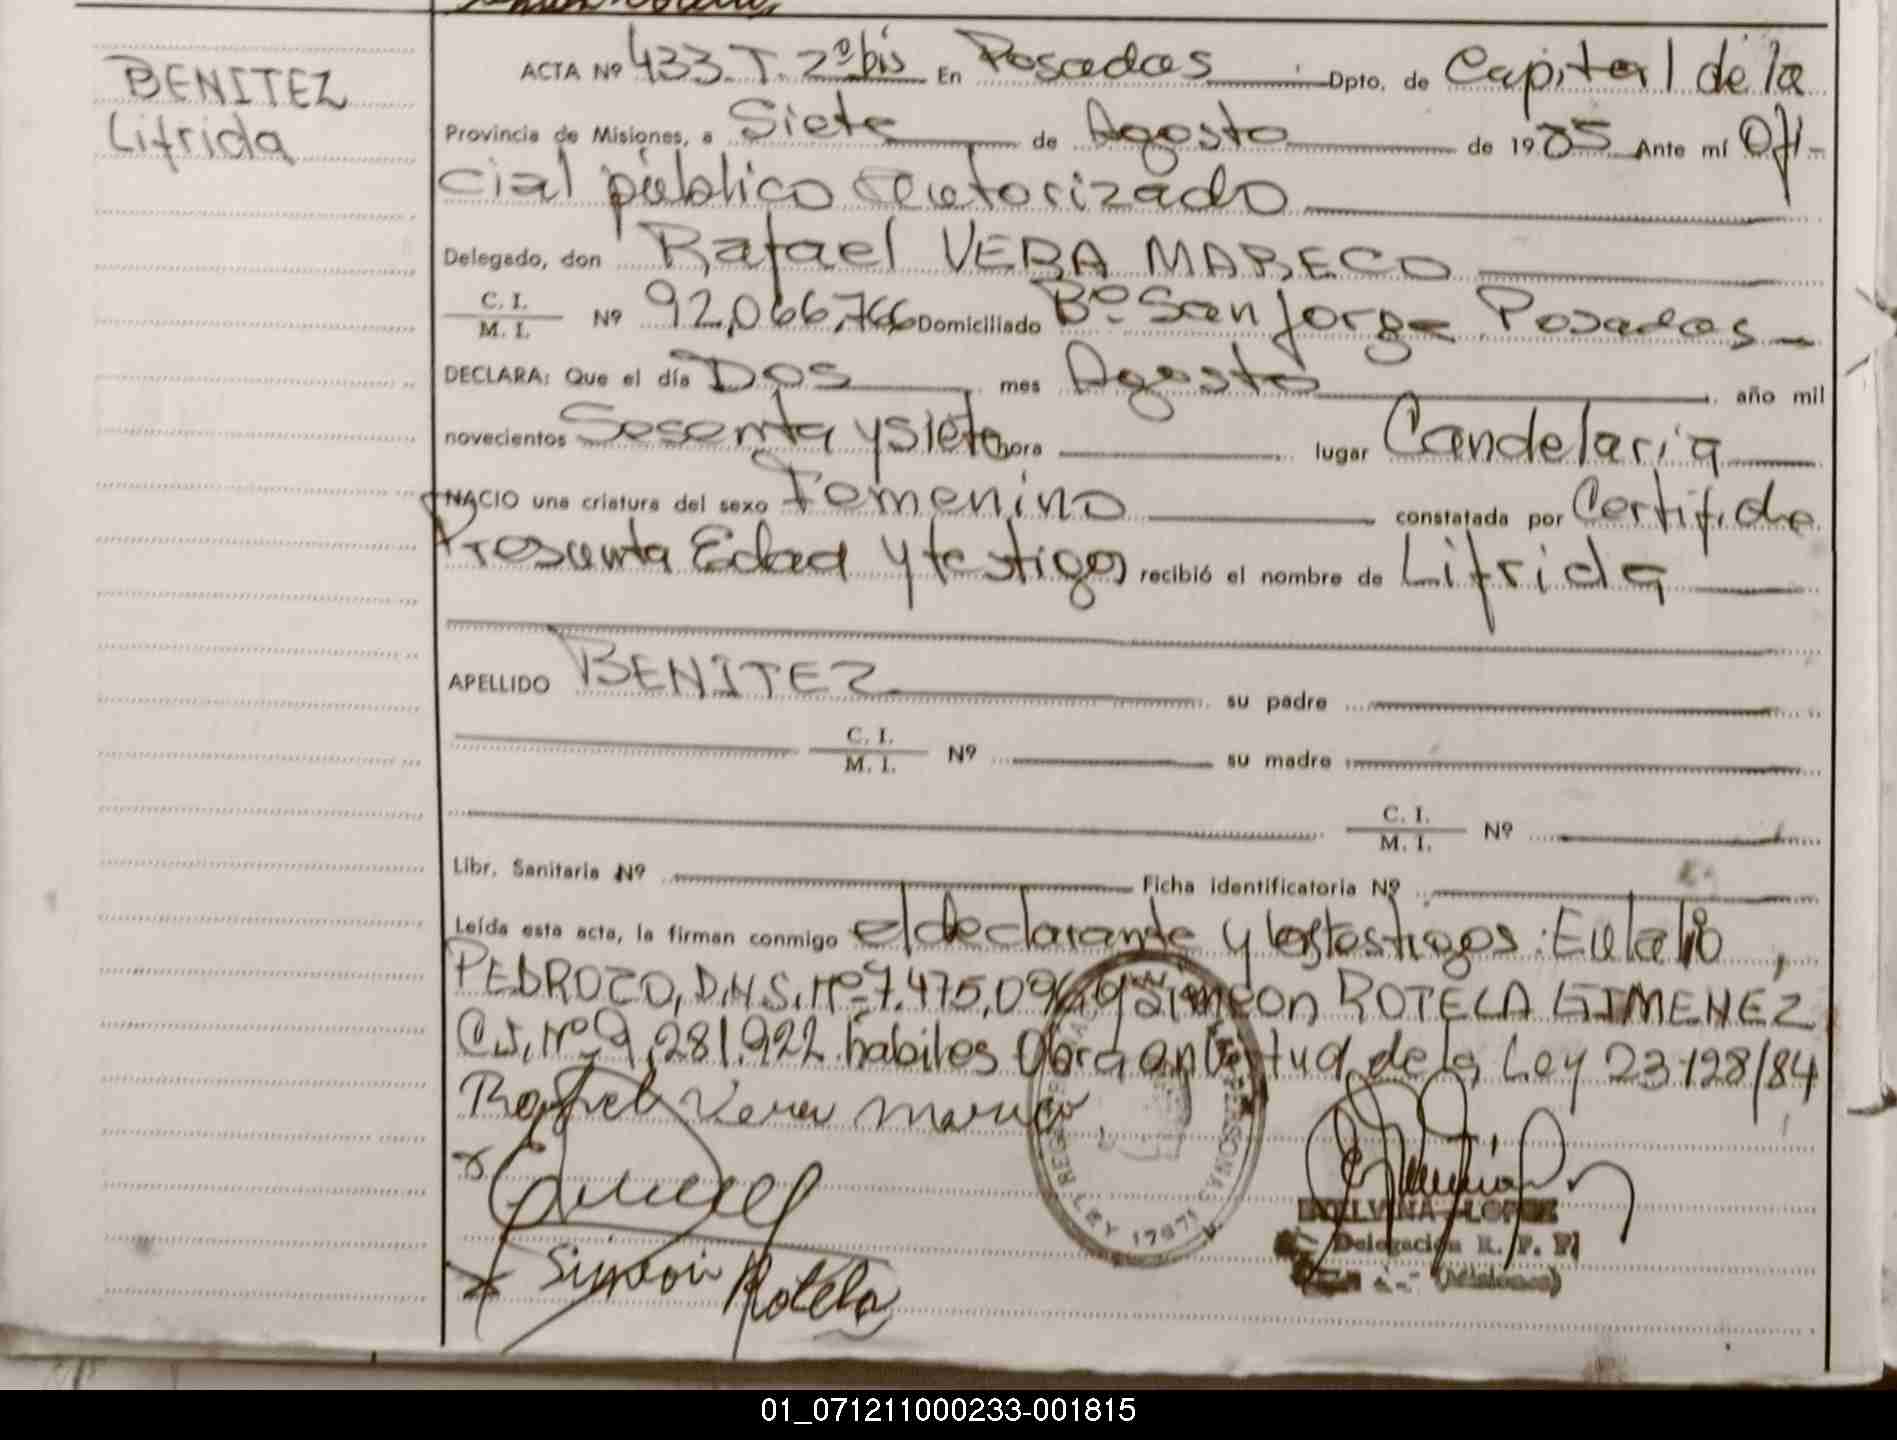 BENITEZ
Lifrida
ACTA Nº 433 T. 2º bis En Posadas Dpto. de Capital de la
Provincia de Misiones, a Siete de Agosto de 1985 Ante mí Ofi-
cial público autorizado
Delegado, don Rafael VERA MARECO
C. I.
M. I. Nº 92,066,766 Domiciliado Bº San Jorge Posadas
DECLARA: Que el día Dos mes Agosto año mil
novecientos Sesenta y siete hora lugar Candelaria
NACIO una criatura del sexo Femenino constatada por Certif. de
Presunta Edad y testigos recibió el nombre de Lifrida
APELLIDO BENITEZ su padre
C. I.
M. I. Nº su madre
C. I.
M. I. Nº
Libr. Sanitaria Nº Ficha identificatoria Nº
Leída esta acta, la firman conmigo el declarante y los testigos: Eulalio
PEDROZO, D.N.I. Nº 7.475.09 y Simeon ROTELA GIMENEZ
C.I. Nº 9,281.922 habiles Obra en virtud de la Ley 23.128/84
Rafael Vera Mareco
Simeon Rotela
LEY 17671
LOPEZ
Delegación R. P. P.
(Misiones)
01_071211000233-001815